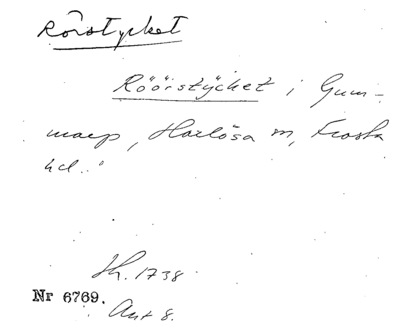 Rörstycket
Röörstÿcket i Gum-
marp, Harlösa sn, Frosta
hd."
Jh. 1738
Nr 6769.
Ant 8.